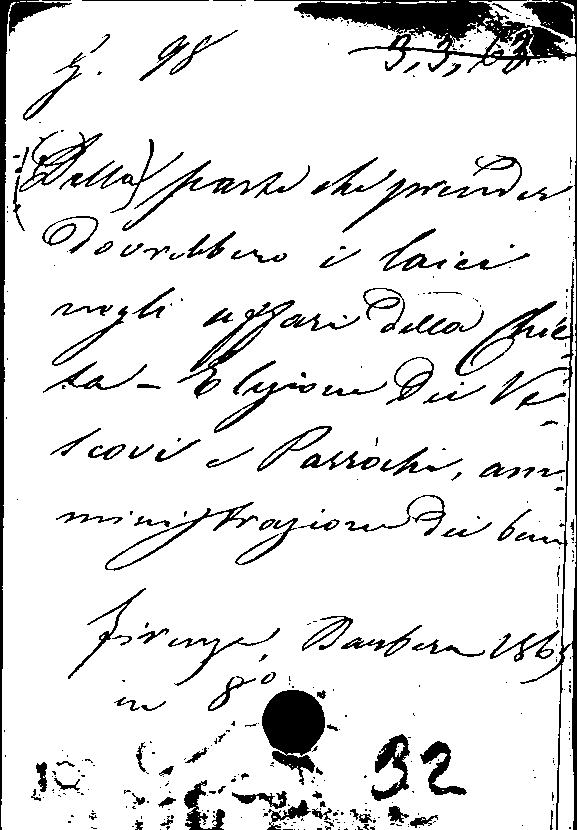 g. 98 3,3,63
(Della) parte che prender
dovrebbero i laici
negli affari della Chie-
sa - Elezione dei Ve-
scovi e Parrochi, am-
ministrazione dei beni
Firenze, Barbera 1863
in 8°
32